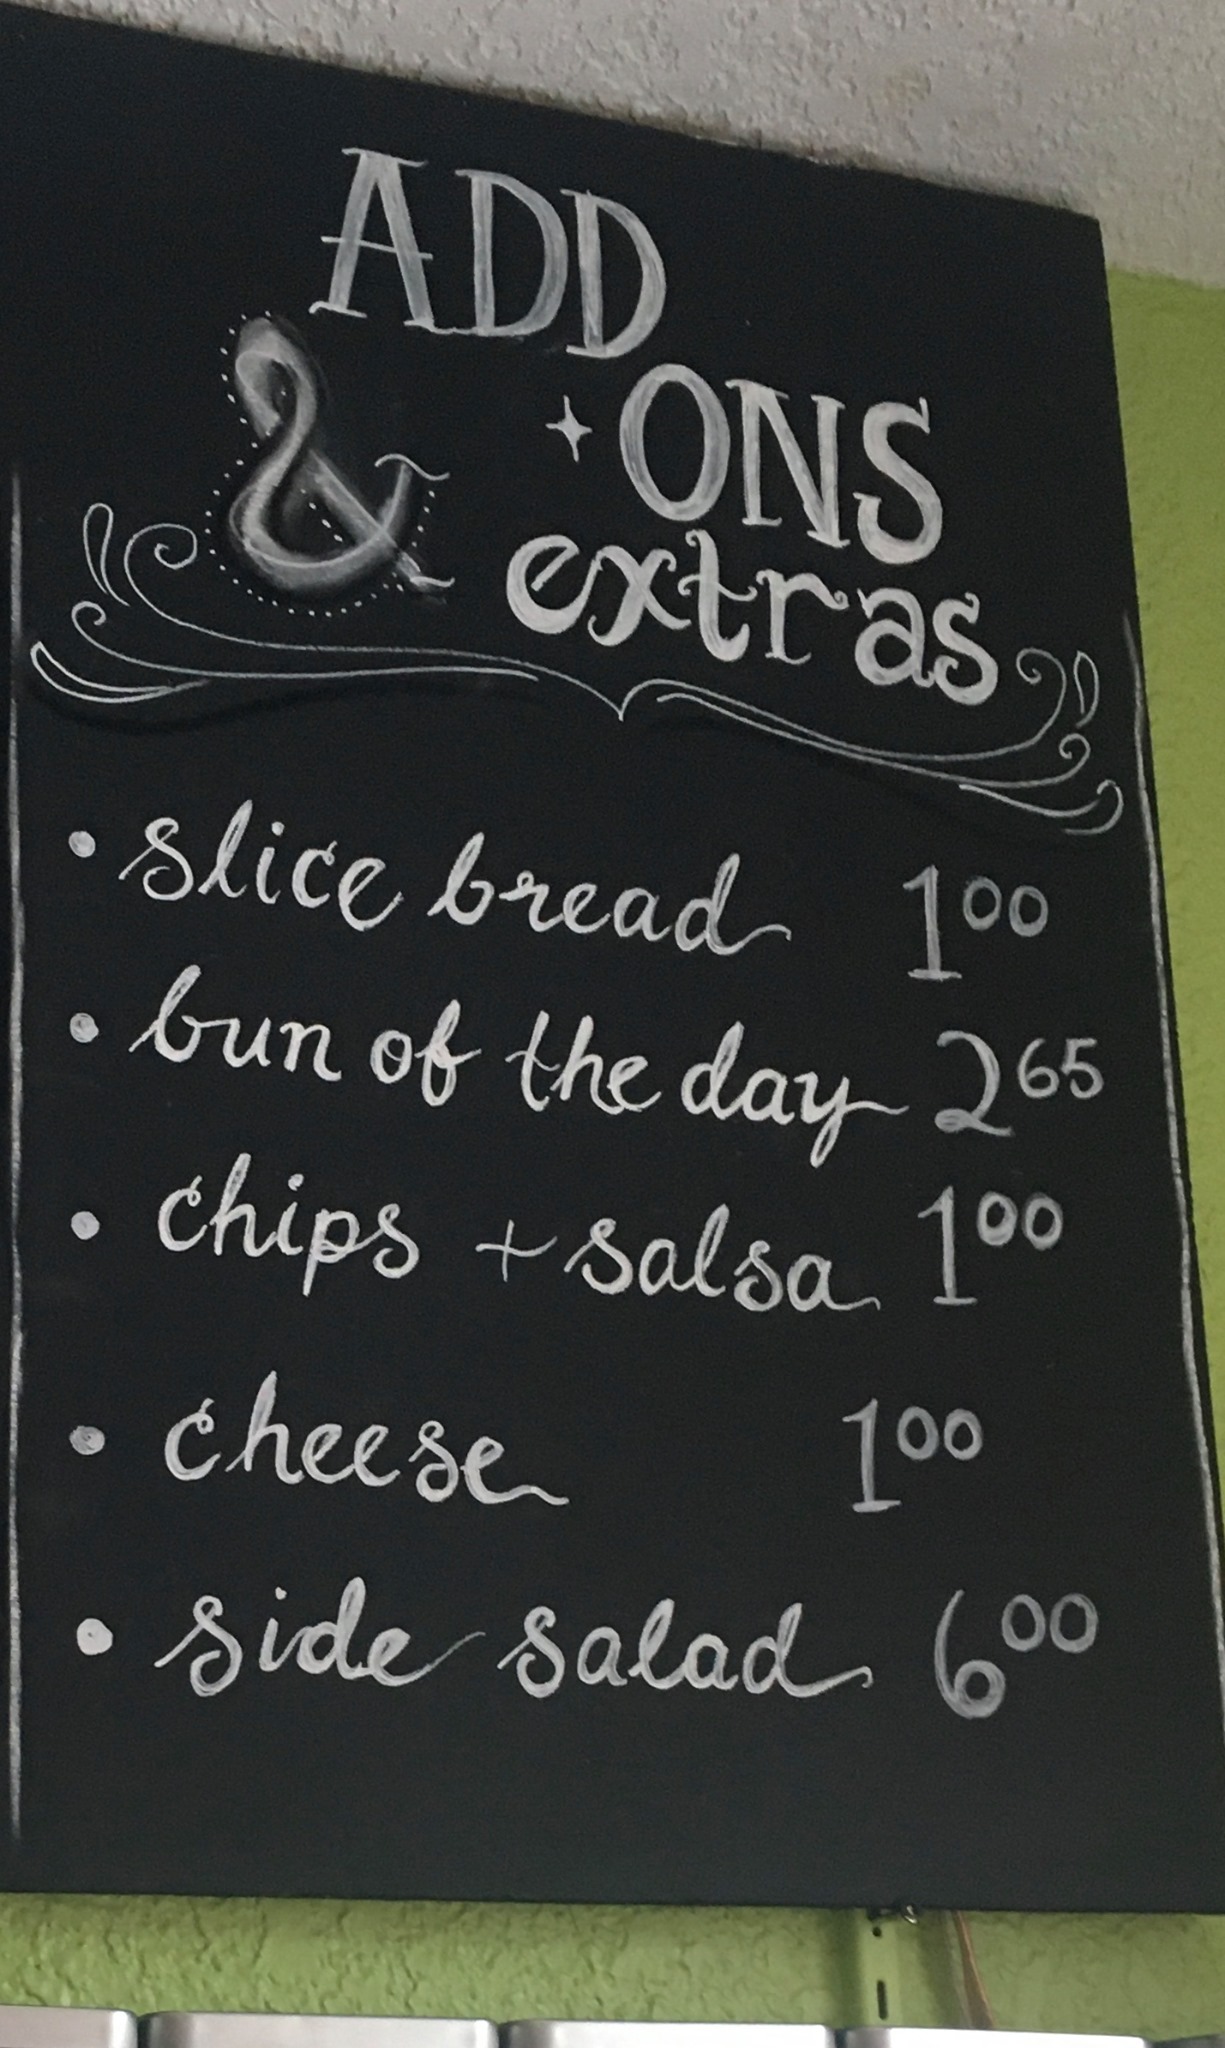 ADD
ONS
& extras
• slice bread 1⁰⁰
• bun of the day 2⁶⁵
• chips + salsa 1⁰⁰
• cheese 1⁰⁰
• side salad 6⁰⁰